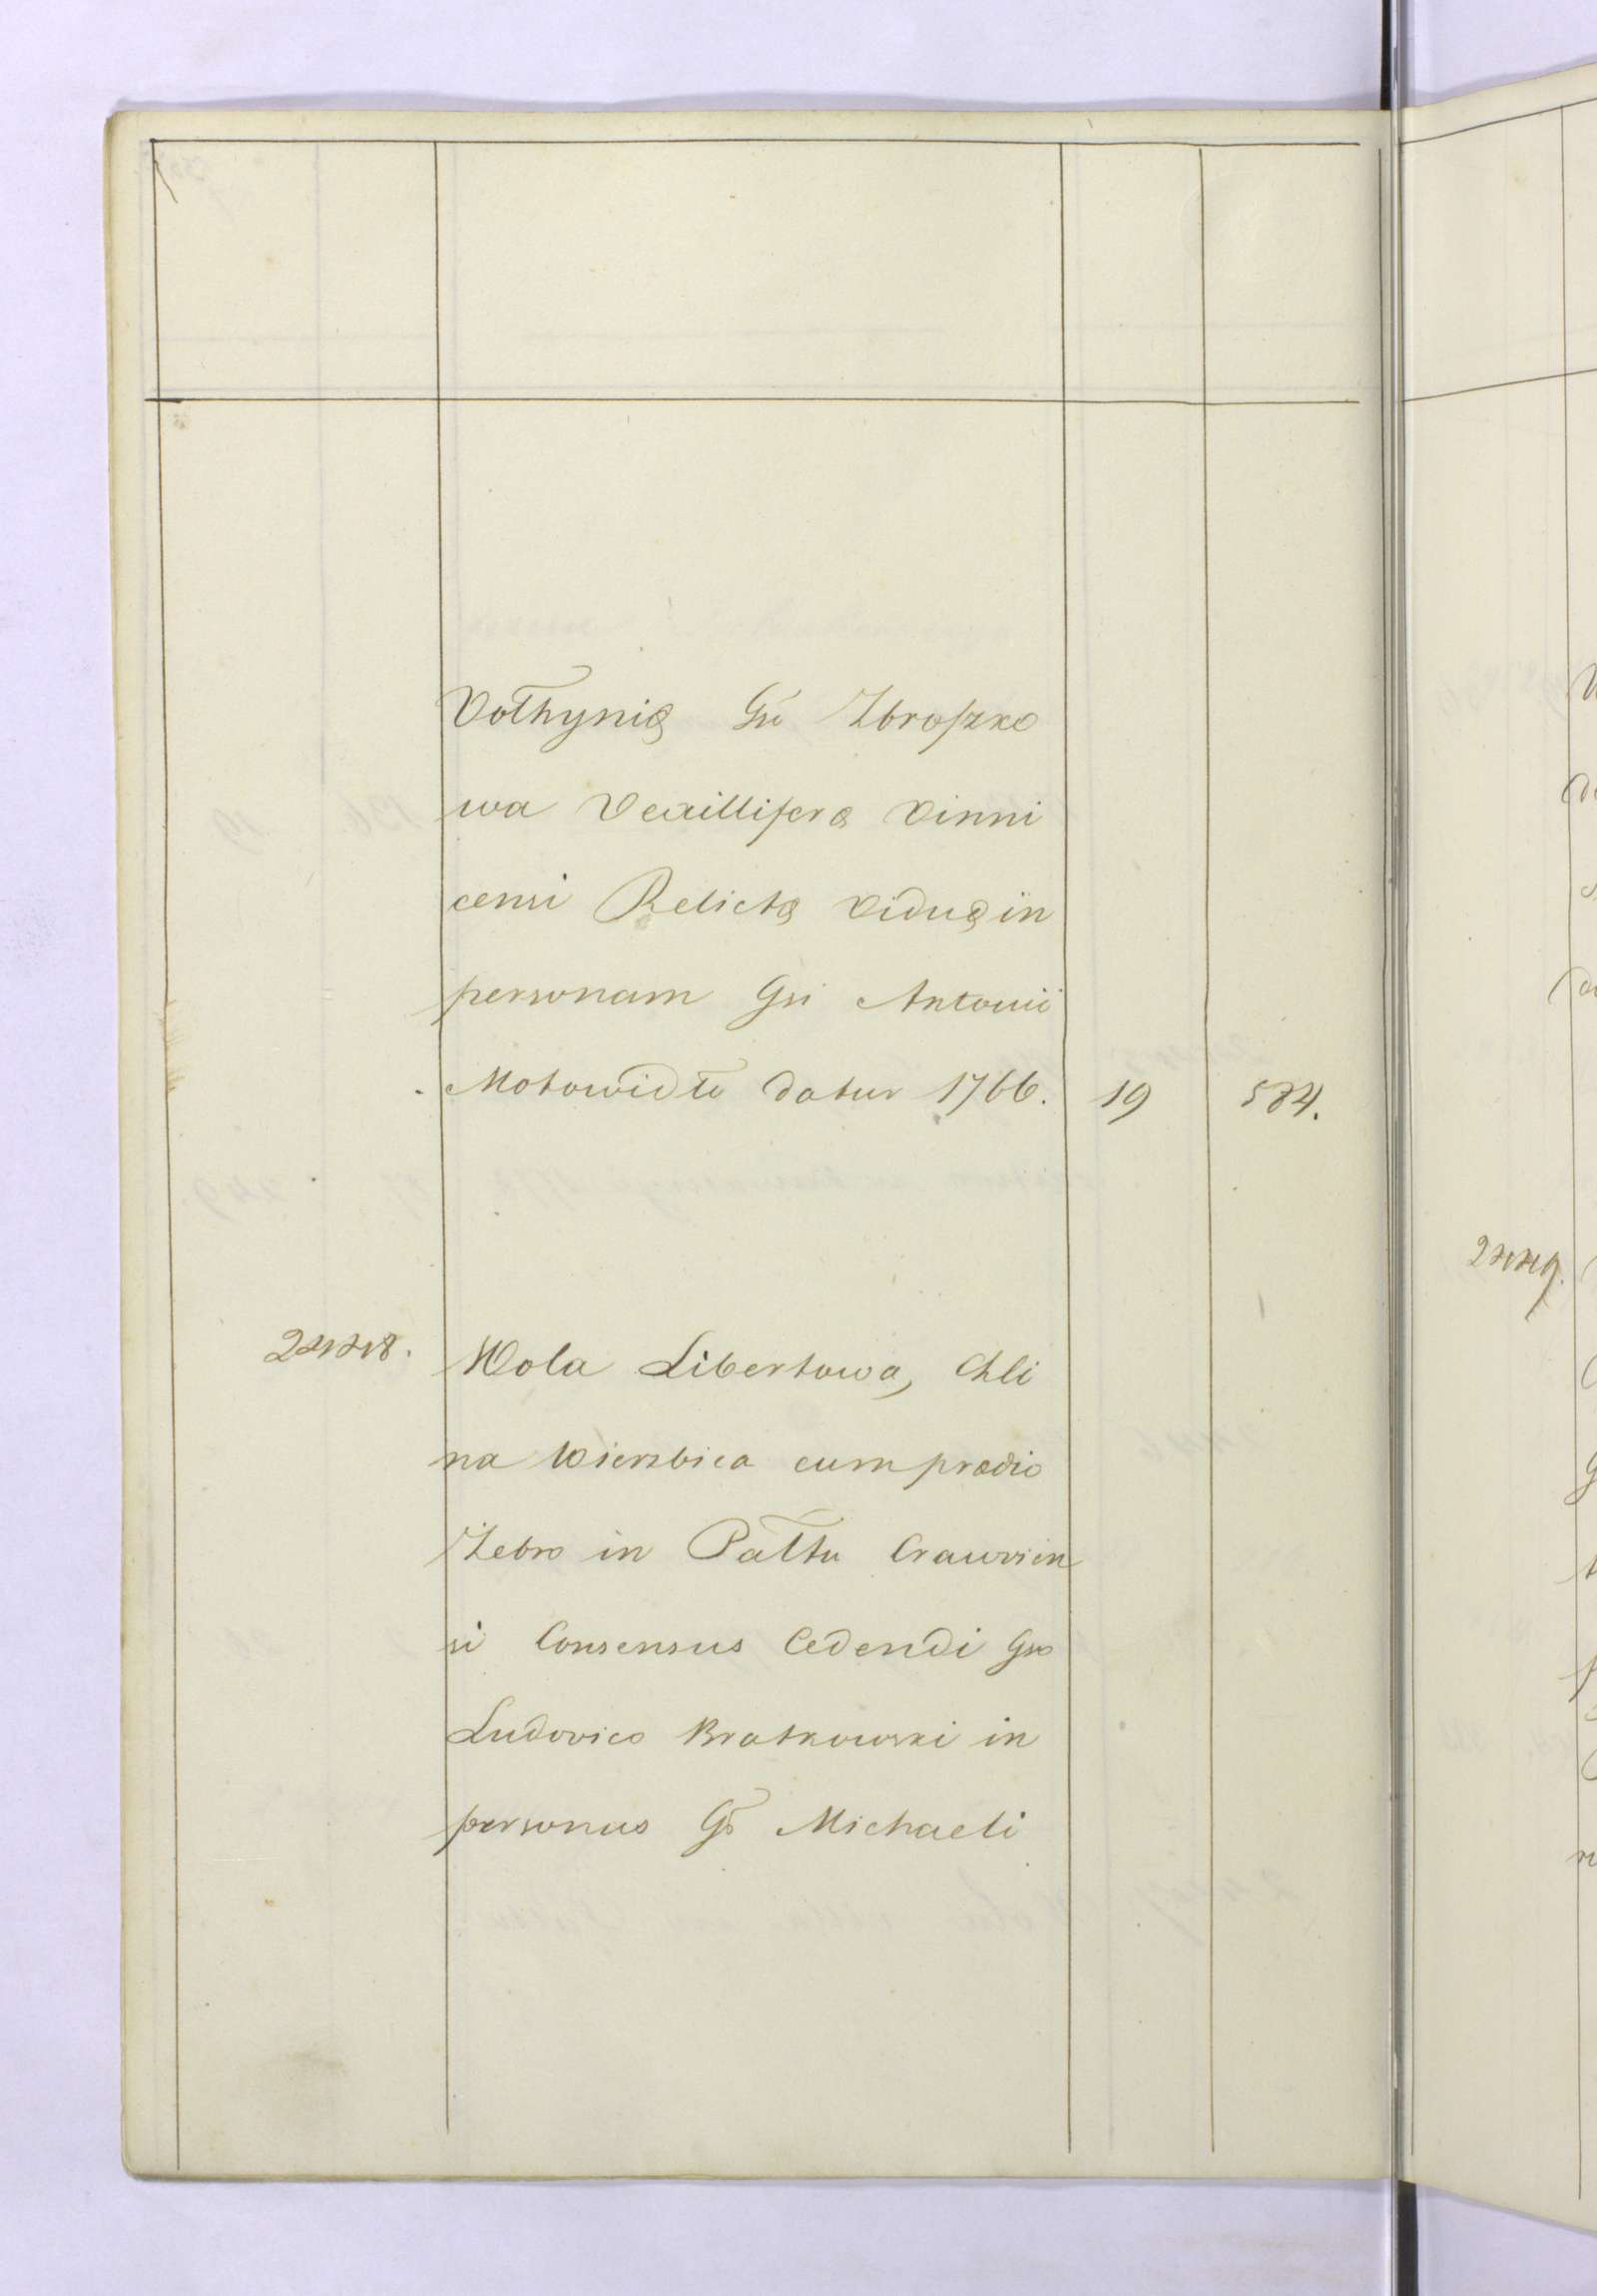 Vołhynię Gu Zbroszko
wa Vexilliferę Vinni
censi Relictę Viduę in
personam Gsi Antonii
Motowidło datur 1766. 19 584.
Wola Libertowa, Chli
na Wierzbica cum prædio
Żebro in Pałtu Cravien
si Consensus Cedendi Gso
Ludovico Bratkowski in
personas G. Michaeli